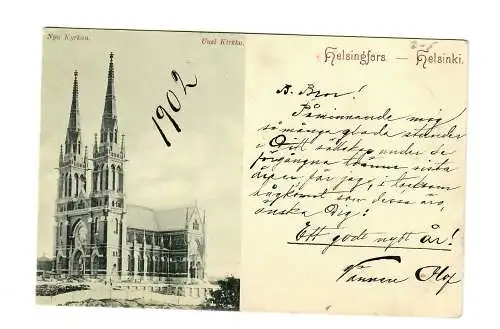 Nya Kyrkan.
Uusi Kirkko.
Helsingfors. — Helsinki.
1902
B. Bror!
Påminnande mig
så många glada stunder
i Ditt sällskap under de
förgångna sista
åren får jag, i
hågkomst som dessa äro,
önska Dig:
Ett godt nytt år!
Vännen Olof